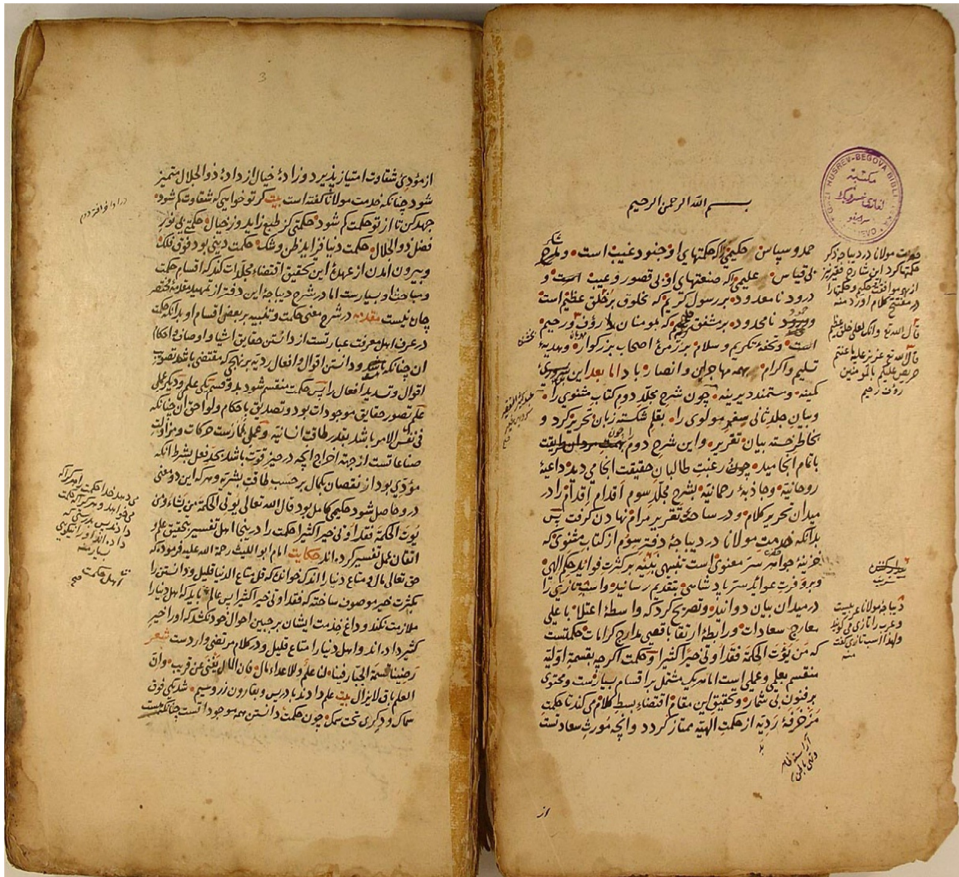 بسم الله الرحمن الرحيم
حمد و سپاس حکیمی را که حکمتهای او جنود غیب است و مدح
بی قیاس علیمی را که صنعتهای او بی قصور و عیب است و
درود نامعدود بر رسول کریم که مخلوق بر خلق عظیم است
نامحدود بر شفیق که بمومنان رؤف و رحیم
است و تحفهٔ تکریم و سلام بر زمرهٔ اصحاب بزرگوار و هدیهٔ
تسلیم و اکرام بر همه مهاجرین و انصار باد اما بعد این
کمینه و مستمند دیرینه چون شرح مجلد دوم کتاب مثنوی را
و بیان جلد ثانی سفر مولوی را بقلم شکسته زبان تحریر کرد و
بخاطر خسته بیان تقریر و این شرح دوم چون
باتمام انجامید رغبت طالبان حقیقت انجامید داعیهٔ
روحانیه و جاذبهٔ رحمانیه بشرح مجلد سوم اقدام اقدام را در
میدان تحریر کلام و در ساحت تقریر مرام نهادن گرفت پس
بدانکه خدمت مولانا در دیباجهٔ دفتر سوم از کتاب مثنوی که
خزینهٔ جواهر سر معنوی است تنبیهی بر کثرت فواید حکم الهی
و بر وفرت عواید سر پادشاهی بتقدیم رسانید و اسب تازی را
در میدان بیان دوانید و تصریح کرد که واسطهٔ اعتلا با علی
معارج سعادات و رابطهٔ ارتقا باقصی مدارج کرامات حکمتست
که من یؤت الحکمة فقد اوتی خیرا کثیرا و حکمت اگرچه بقسمة اولیه
منقسم بعلمی و عملی است اما هر یک مشتمل بر اقسام بسیارست و محتوی
بر فنون بی شمار و تحقیق این مقام اقتضاء بسط کلام می کند تا حکمت
مزخرفهٔ ردیه از حکمت الهیه ممتاز گردد و آنچه مورث سعادتست
از
خدمت مولانا در دیباجه ذکر
حکمتها کرد این شارح فقیر نیز
قال الله تع وانک لعلی خلق عظیم
قال الله تع عزیز علیه ما عنتم
حریص علیکم بالمومنین
رؤف رحیم
GAZI HUSREV-BEGOVA BIBLIOTEKA
SARAJEVO
3
از مؤدی شقاوت امتیاز پذیرد و زادهٔ خیال از دادهٔ ذو الجلال متمیز
شود چنانکه خدمت مولانا گفته است بیت گر تو خواهی که شقاوت کم شود
جهد کن تا از تو حکمت کم شود حکمتی کز طبع زاید وز خیال حکمتی بی فیض نور
ذو الجلال حکمت دنیا فزاید ظن و شک حکمت دینی بود فوق فلک
و بیرون آمدن از عهدهٔ این تحقیق اقتضاء مجلدات کند که اقسام حکمت
و مباحث او بسیارست اما در شرح دیباجهٔ این دفتر از تمهید مقدمهٔ مختصر
چاره نیست مقدمه در شرح معنی حکمت و تنبیه بر بعضی اقسام او بدانکه حکمت
در عرف اهل معرفت عبارتست از دانستن حقایق اشیا و اوصاف و احکام
آن چنانکه باشد و دانستن اقوال و افعال ردیه بر نهجی که مقتضی باشد تصویب
اقوال و تسدید افعال را پس حکمت منقسم شود بدو قسم یکی علم و دیگر عمل
علم تصور حقایق موجودات بود و تصدیق باحکام و لواحق آن چنانکه
فی نفس الامر باشد بقدر طاقت انسانیه و عمل ممارست حرکات و مزاولت
صناعاتست از جهة اخراج آنچه در حیز قوت باشد بحد فعل بشرط آنکه
مؤدی بود از نقصان بکمال بر حسب طاقت بشریه و هر که این دو معنی
درو حاصل شود حکیمی کامل بود قال الله تعالی یؤتی الحکمة من یشاء و من
یؤت الحکمة فقد اوتی خیرا کثیرا حکمت را درینجا اهل تفسیر بتحقیق علم و
اتقان عمل تفسیر کرده اند حکایت امام ابو اللیث رحمة الله علیه فرموده که
حق تعالی مال و متاع دنیا را اندک خواند که قل متاع الدنیا قلیل و دانستن را
بکثرت خیر موصوف ساخته که فقد اوتی خیرا کثیرا پس عالم باید که اهل دنیا را
ملازمت نکند و داغ خدمت ایشان بر جبین احوال خود نکشد که او را خیر
کثیر داده اند و اهل دنیا را متاع قلیل و در کلام مرتضی وارد است شعر
رضینا قسمة الجبار فینا لنا علم وللاعداء مال فان المال یفنی عن قریب وان
العلم باق لا یزال بیت علم دادند بادریس و بقارون زر و سیم شد یکی فوق
سماک و دیگری تحت سمک چون حکمت دانستن همه موجوداتست چنانکه هست